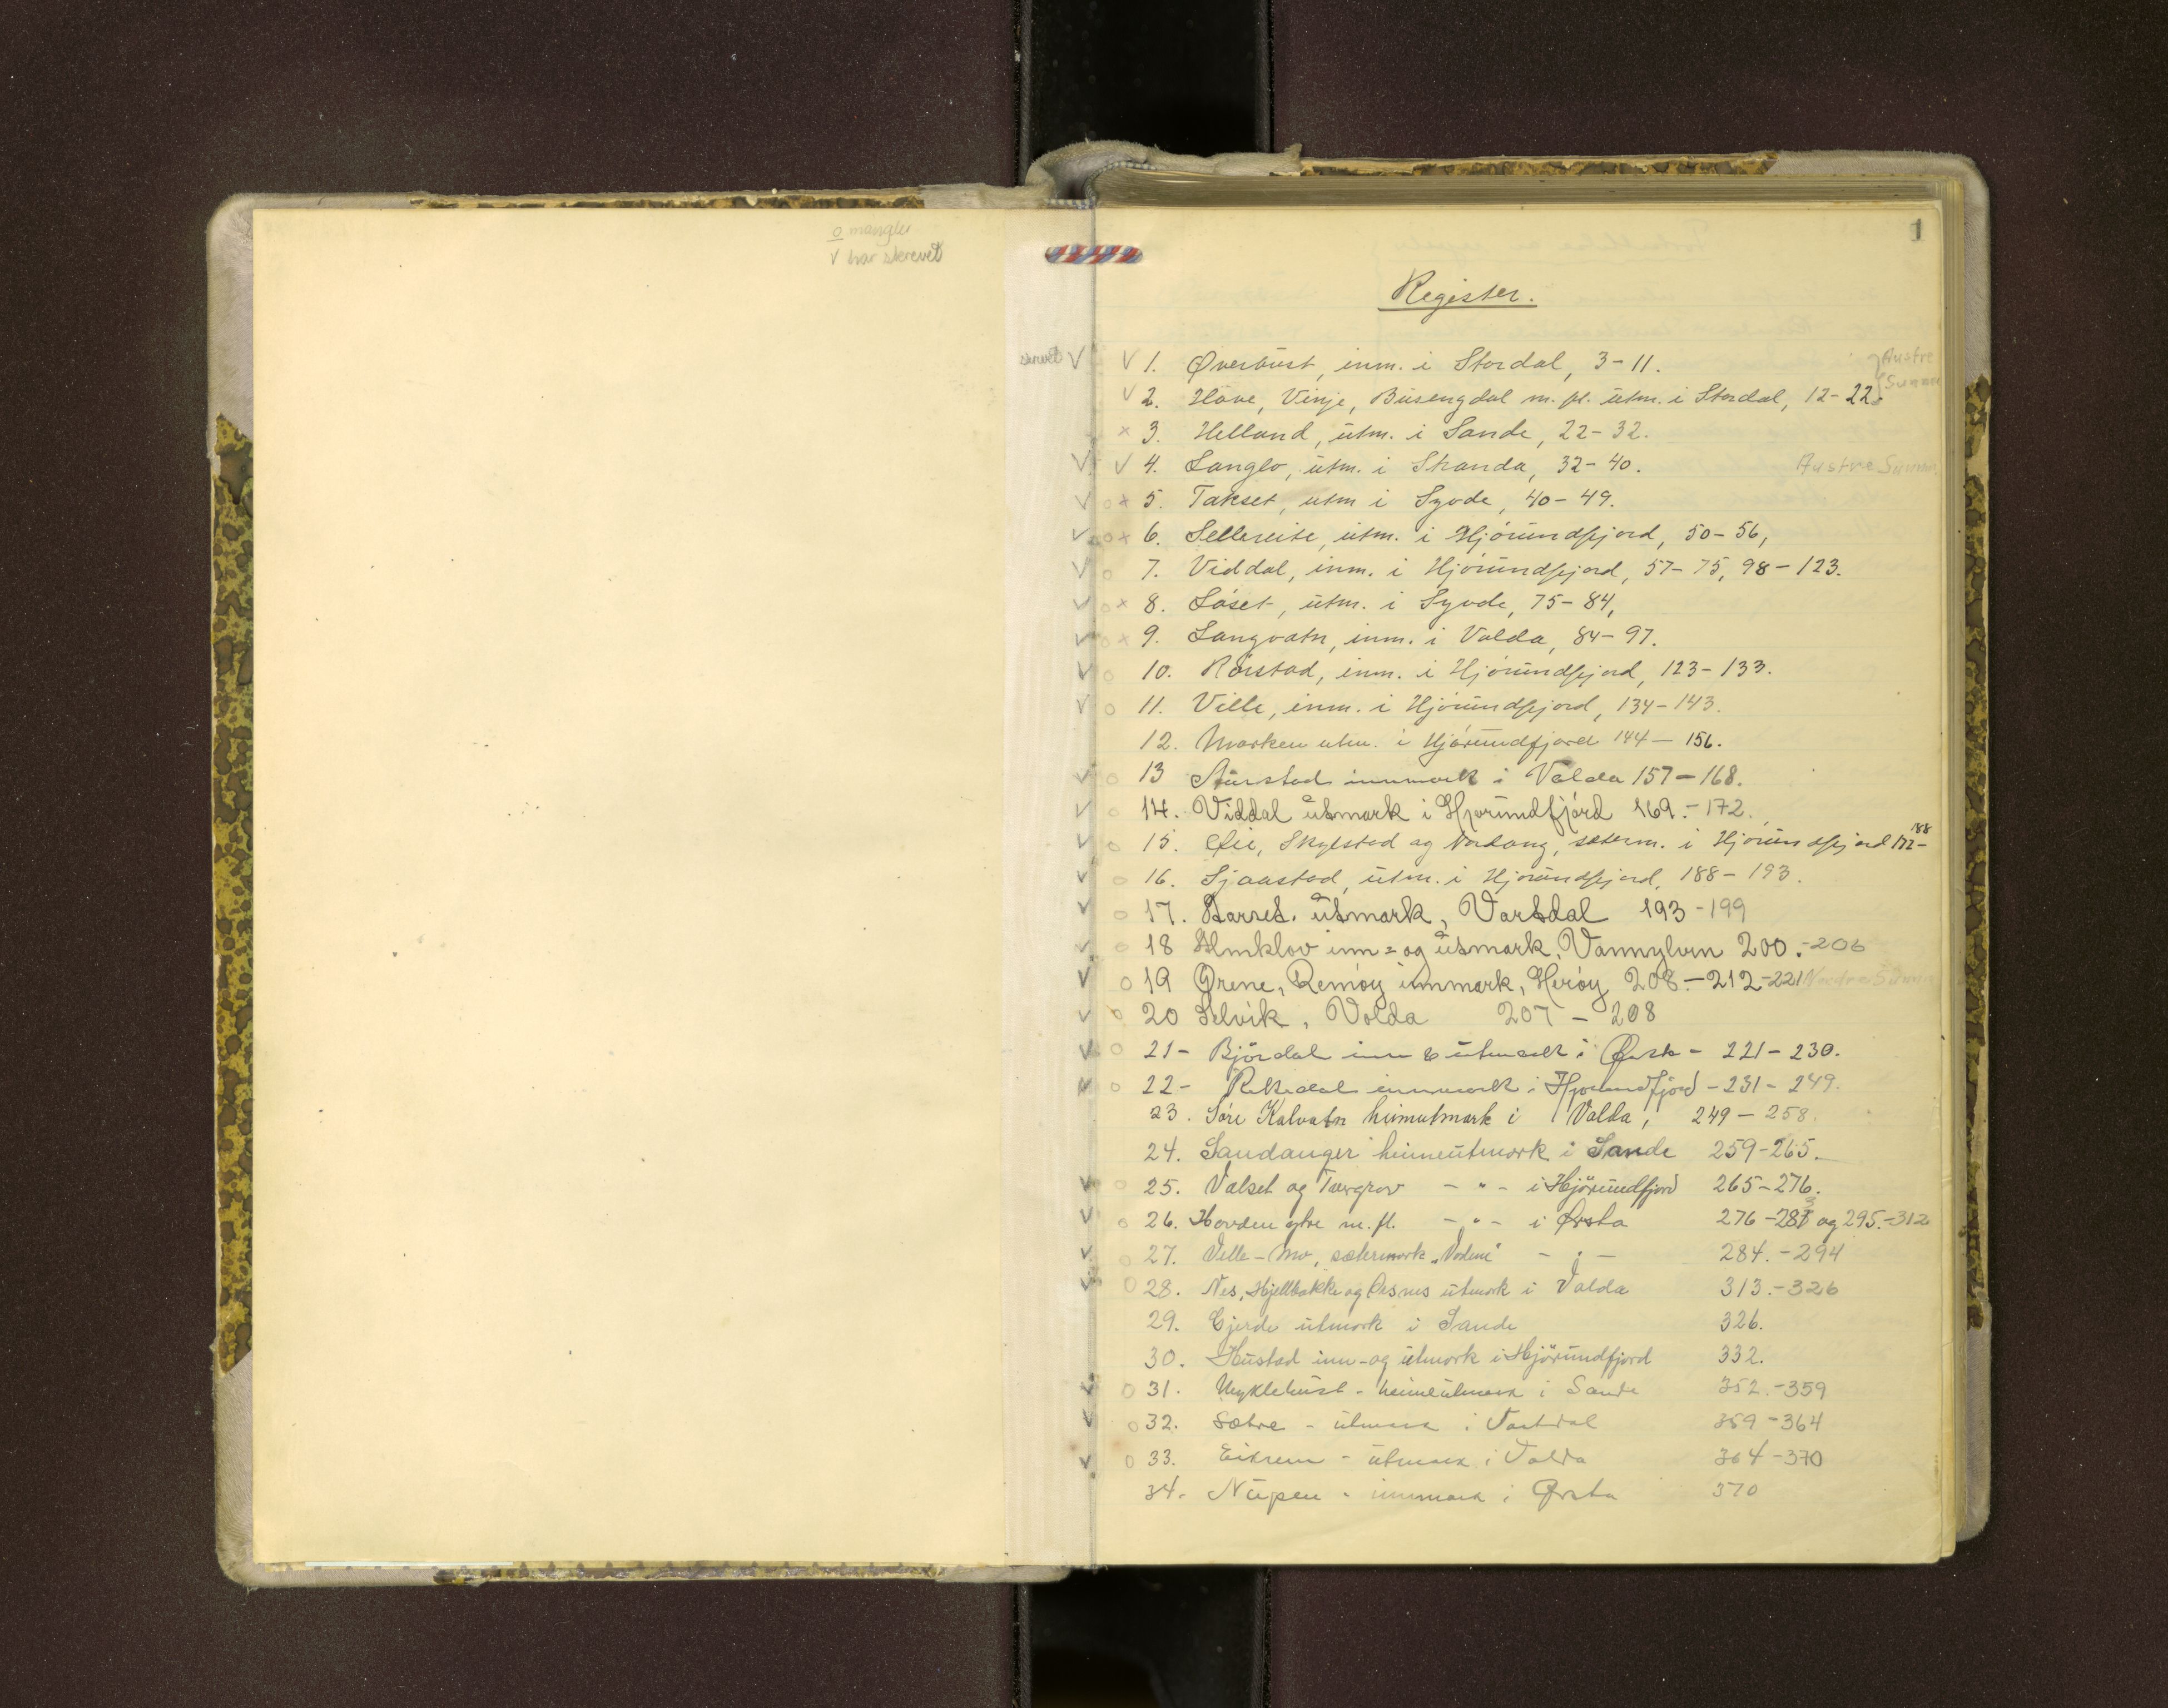 o mangler
v har skrevet
1
Register.
v v 1. Øveraust, inm. i Stordal, 3-11. Austre
v 2. Hove, Vinje, Busengdal m. fl. utm. i Stordal, 12-22.
x 3. Helland, utm. i Sande, 22-32.
v v 4. Langlo, utm. i Stranda, 32-40. Austre Sunnm
v o x 5. Takset, utm i Syvde, 40-49.
v o x 6. Sellereite, utm. i Hjörundfjord, 50-56,
v o 7. Viddal, inm. i Hjörundfjord, 57-75, 98-123.
v o x 8. Löset, utm. i Syvde, 75-84,
v o x 9. Langvatn, inm. i Volda, 84-97.
v o 10. Rörstad, inm. i Hjörundfjord, 123-133.
v o 11. Ville, inm. i Hjörundfjord, 134-143.
12. Marken utm. i Hjörundfjord 144-156.
v o 13 Aurstad innmark i Volda 157-168.
v o 14. Viddal utmark i Hjørundfjørd 169.-172.
v o 15. Øie, Skylstad og Nordang, seterm. i Hjörundfjord 172-188
v o 16. Sjaastad, utm. i Hjörundfjord, 188-193.
v o 17. Barset. utmark, Vartdal 193-199
v o 18 Almklov inn= og utmark, Vannylven 200.-206
v o 19 Ørene, Remøy innmark, Herøy 208.-212-221 Nordre Sunnm
v o 20 Selvik, Volda 207-208
v o 21- Björdal inn & utmark i Ørsta - 221-230.
v o 22- Rekedal innmark i Hjørundfjord - 231-249.
23. Söre Kalvatn heimutmark i Volda, 249-258.
24. Sandanger heimeutmark i Sande 259-265.
v o 25. Valset og Tuvgrov - " - i Hjörundfjord 265-276.
v o 26. Hovden ytre m. fl. - " - i Ørsta 276-283 og 295.-312
v o 27. Velle - Mo, sætermark "Vodene" - " - 284.-294
v o 28. Nes, Hjellbakke og Aasnes utmark i Volda 313.-326
29. Gjerde utmark i Sande 326.
30. Hustad inn- og utmark i Hjörundfjord 332.
v o 31. Myklebust - heimeutmark i Sande 352.-359
v o 32. Sætre - utmark i Vartdal 359-364
v o 33. Eikrem - utmark i Volda 364-370
34. Nupen - innmark i Ørsta 370